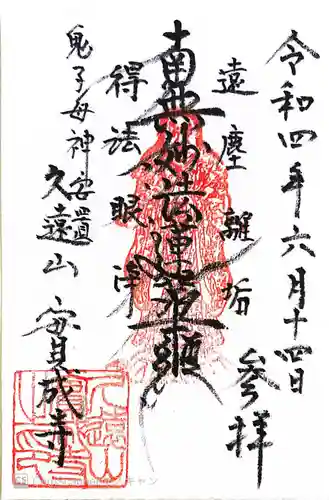 令和四年六月十四日
参拝
遠塵離垢
南無妙法蓮華経
得法眼浄
鬼子母神安置
久遠山 安具成寺